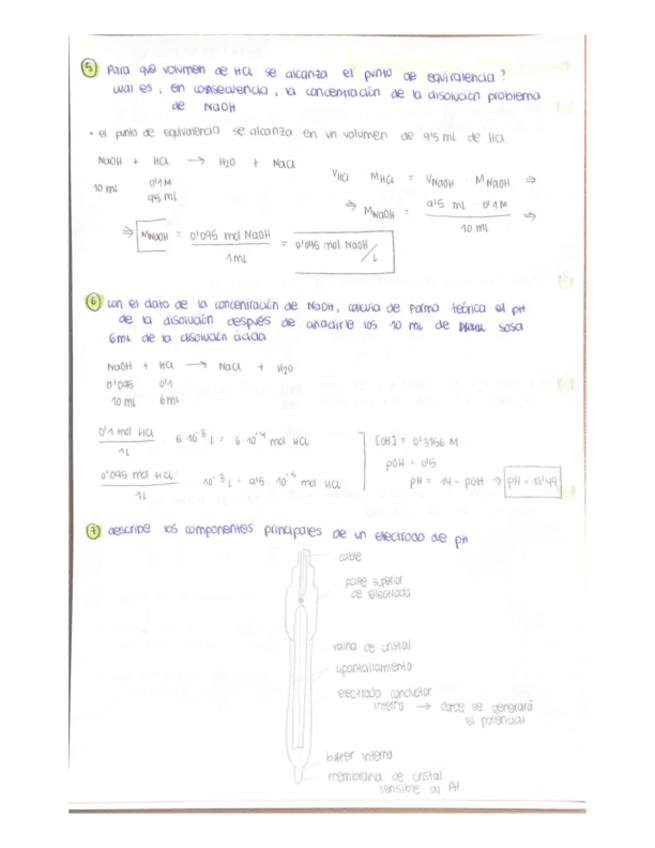 5 Para que volumen de HCl se alcanza el punto de equivalencia?
cual es, en consecuencia, la concentración de la disolución problema
de NaOH
• el punto de equivalencia se alcanza en un volumen de 9'5 mL de HCl
NaOH + HCl → H2O + NaCl
10 mL 0'1 M
9'5 mL
VHCl · MHCl = VNaOH · MNaOH ⇒
⇒ MNaOH = 9'5 mL · 0'1 M / 10 mL ⇒
⇒ MNaOH = 0'095 mol NaOH / 1 mL = 0'095 mol NaOH / L
6 con el dato de la concentración de NaOH, calcula de forma teórica el pH
de la disolución después de añadirle los 10 mL de sosa
6mL de la disolución ácida
NaOH + HCl → NaCl + H2O
0'095 0'1
10 mL 6 mL
0'1 mol HCl / 1L · 6·10⁻³ L = 6·10⁻⁴ mol HCl
0'095 mol HCl / 1L · 10⁻³ L = 9'5·10⁻⁵ mol HCl
[OH] = 0'3156 M
pOH = 0'5
pH = 14 - pOH ⇒ pH = 13'49
7 describe los componentes principales de un electrodo de pH
cable
parte superior
de electrodo
vaina de cristal
apantallamiento
electrodo conductor
interno → donde se generará
el potencial
buffer interno
membrana de cristal
sensible al pH